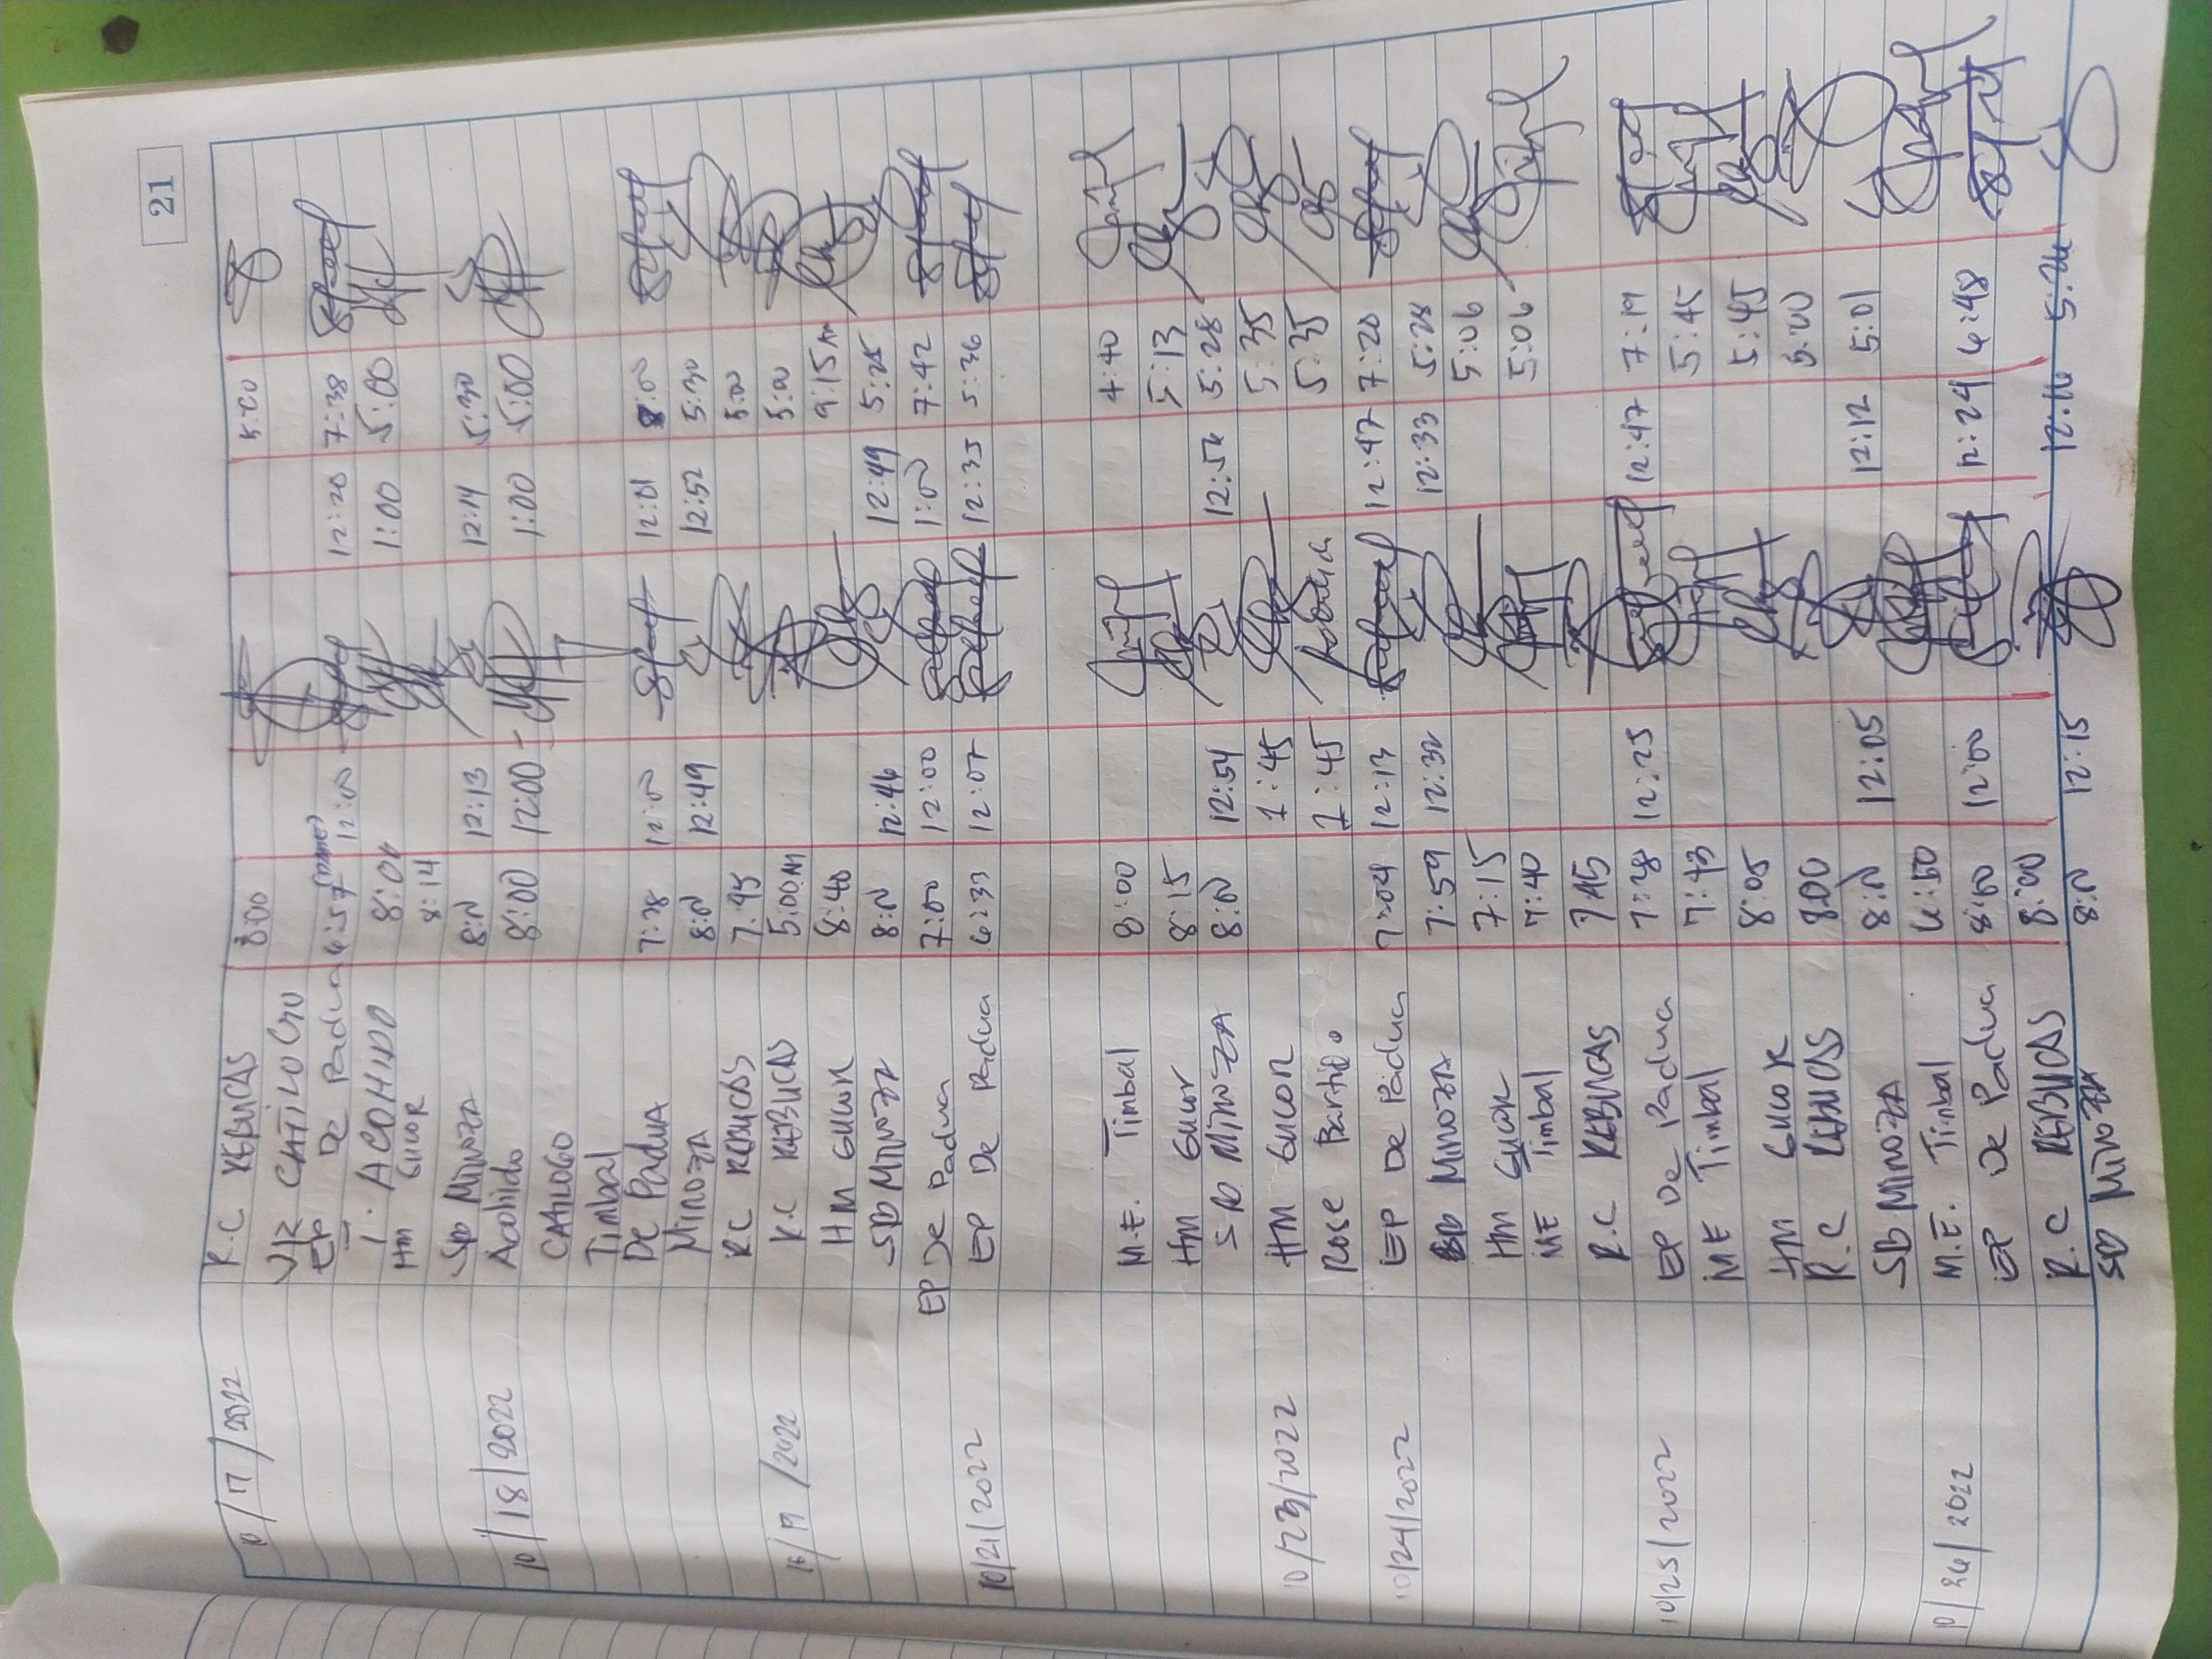 21
10/17/2022 R.C REBUCAS 8:00 5:00
V.R CATILOGO
EP De Padua 6:57 12:00 12:20 7:38
I. ACOHIDO 1:00 5:00
HM GUCOR 8:14
SD MINOZA 8:00 12:13 12:14 5:30
10/18/2022 Acohido 8:00 12:00 1:00 5:00
CATILOGO
Timbal
De Padua 7:28 12:00 12:01 8:00
MINOZA 8:00 12:49 12:52 5:30
R.C REBUCAS 7:45 5:00
10/19/2022 R.C REBUCAS 5:00 AM 5:00
HM GUCOR 8:40 9:15 AM
SD MINOZA 8:00 12:46 12:49 5:25
EP De Padua 7:00 12:00 1:00 7:42
10/21/2022 EP De Padua 6:33 12:07 12:35 5:36
M.E. Timbal 8:00 4:40
HM Gucor 8:15 5:13
SD MINOZA 8:00 12:54 12:56 5:28
10/23/2022 HM GUCOR 7:45 5:35
Rose 7:45 5:35
10/24/2022 EP De Padua 7:04 12:13 12:47 7:20
SD MINOZA 7:59 12:32 12:33 5:28
HM GUCOR 7:15 5:06
ME Timbal 7:40 5:06
R.C REBUCAS 7:45
10/25/2022 EP De Padua 7:28 12:25 12:47 7:19
ME Timbal 7:43 5:45
HM GUCOR 8:05 5:45
R.C REBUCAS 8:00 5:00
SD MINOZA 8:00 12:05 12:12 5:01
10/26/2022 M.E. Timbal 6:50
EP De Padua 8:00 12:00 12:24 6:48
R.C REBUCAS 8:00
SD MINOZA 8:00 12:15 12:16 5:26